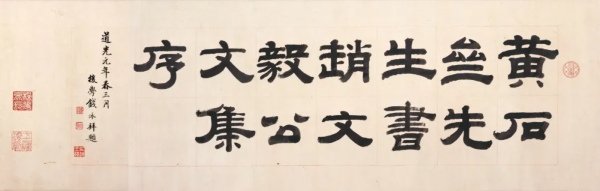 黄石
亝先
生書
趙文
毅公
文集
序
道光元年春三月
後學錢泳拜題